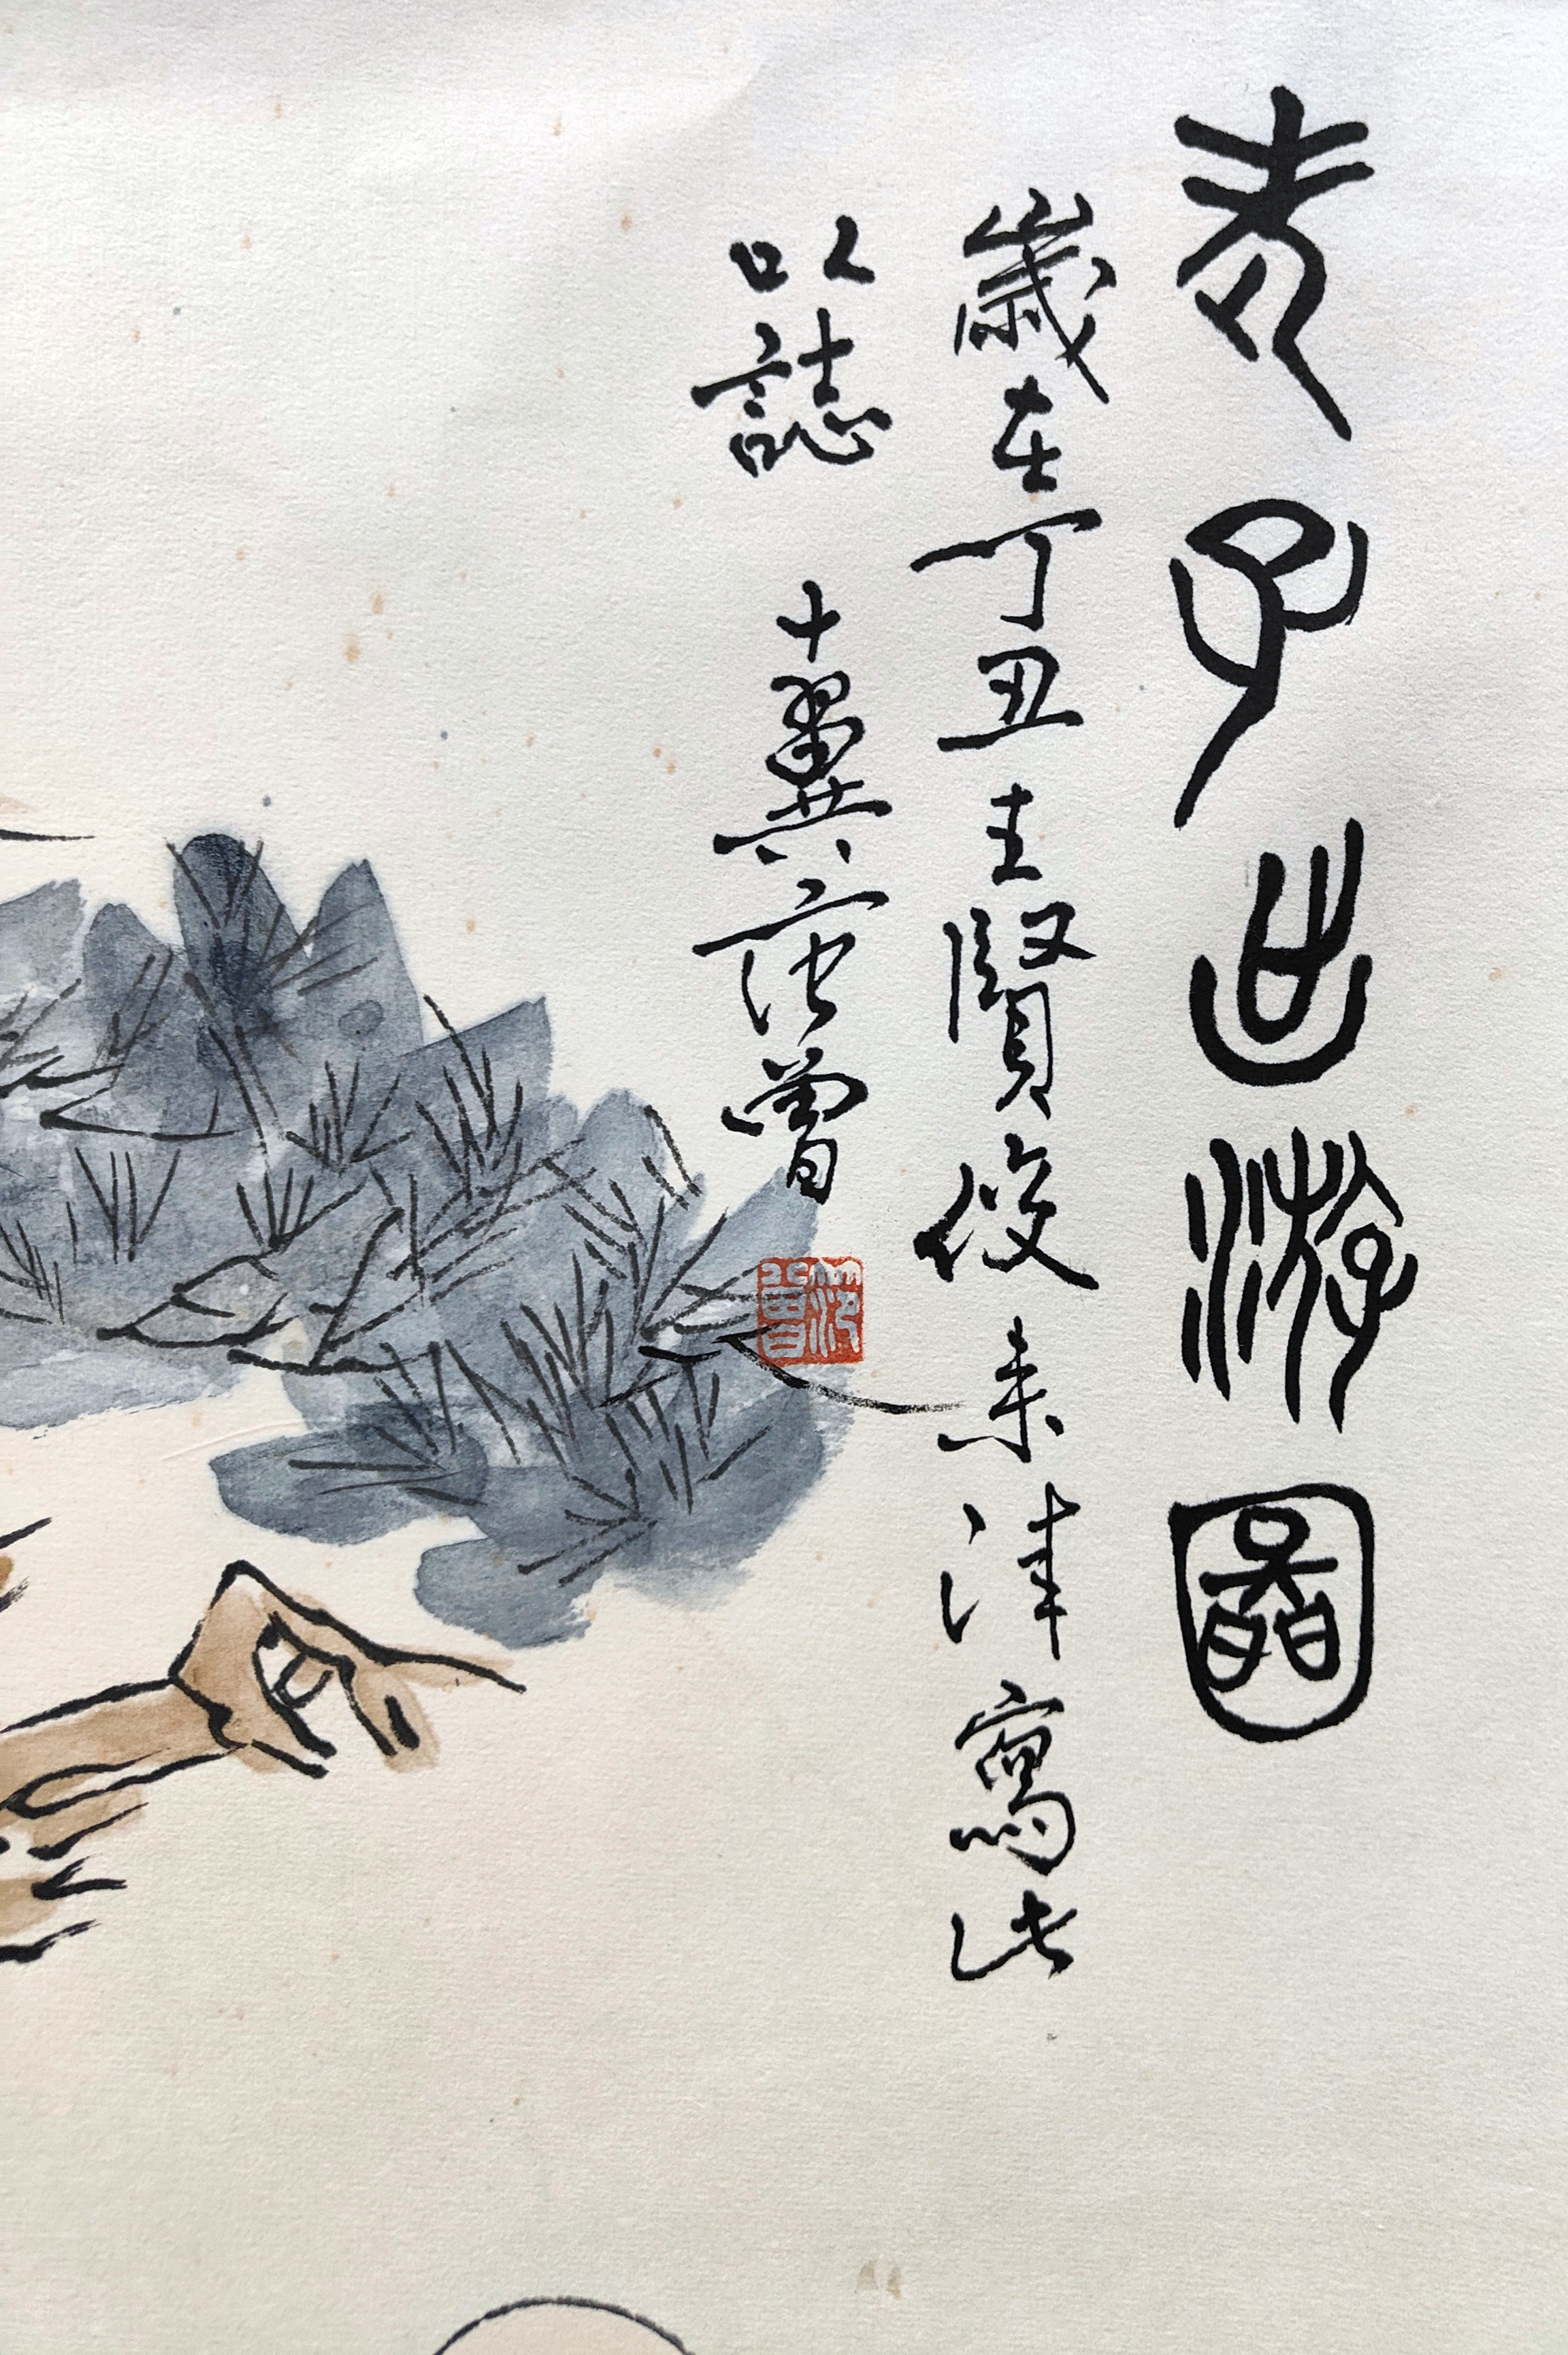 老子出游圖
歲在丁丑王賢俊來津寫此
以誌 十翼范曾
范曾